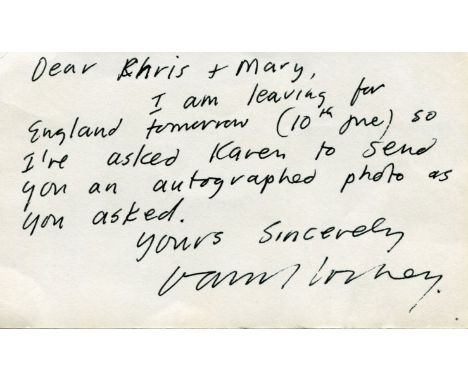 Dear Chris + Mary,
I am leaving for
England tomorrow (10th June) so
I've asked Karen to send
you an autographed photo as
you asked.
Yours Sincerely